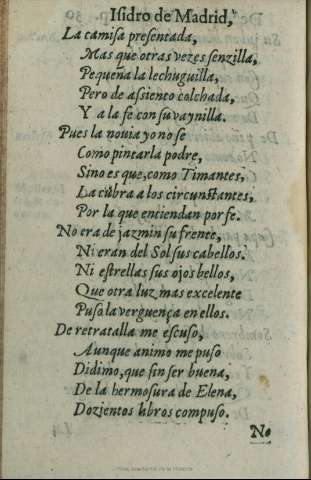 Isidro de Madrid,
La camisa presentada,
Mas que otras vezes senzilla,
Pequeña la lechuguilla,
Pero de assiento colchada,
Y a la fe con su vaynilla.
Pues la nouia yo no se
Como pintarla podre,
Sino es que, como Timantes,
La cubra a los circunstantes,
Por la que entiendan por fe.
No era de jazmin su frente,
Ni eran del Sol sus cabellos.
Ni estrellas sus ojos bellos,
Que otra luz mas excelente
Puso la verguença en ellos.
De retratalla me escuso,
Aunque animo me puso
Didimo, que sin ser buena,
De la hermosura de Elena,
Dozientos libros compuso.
No